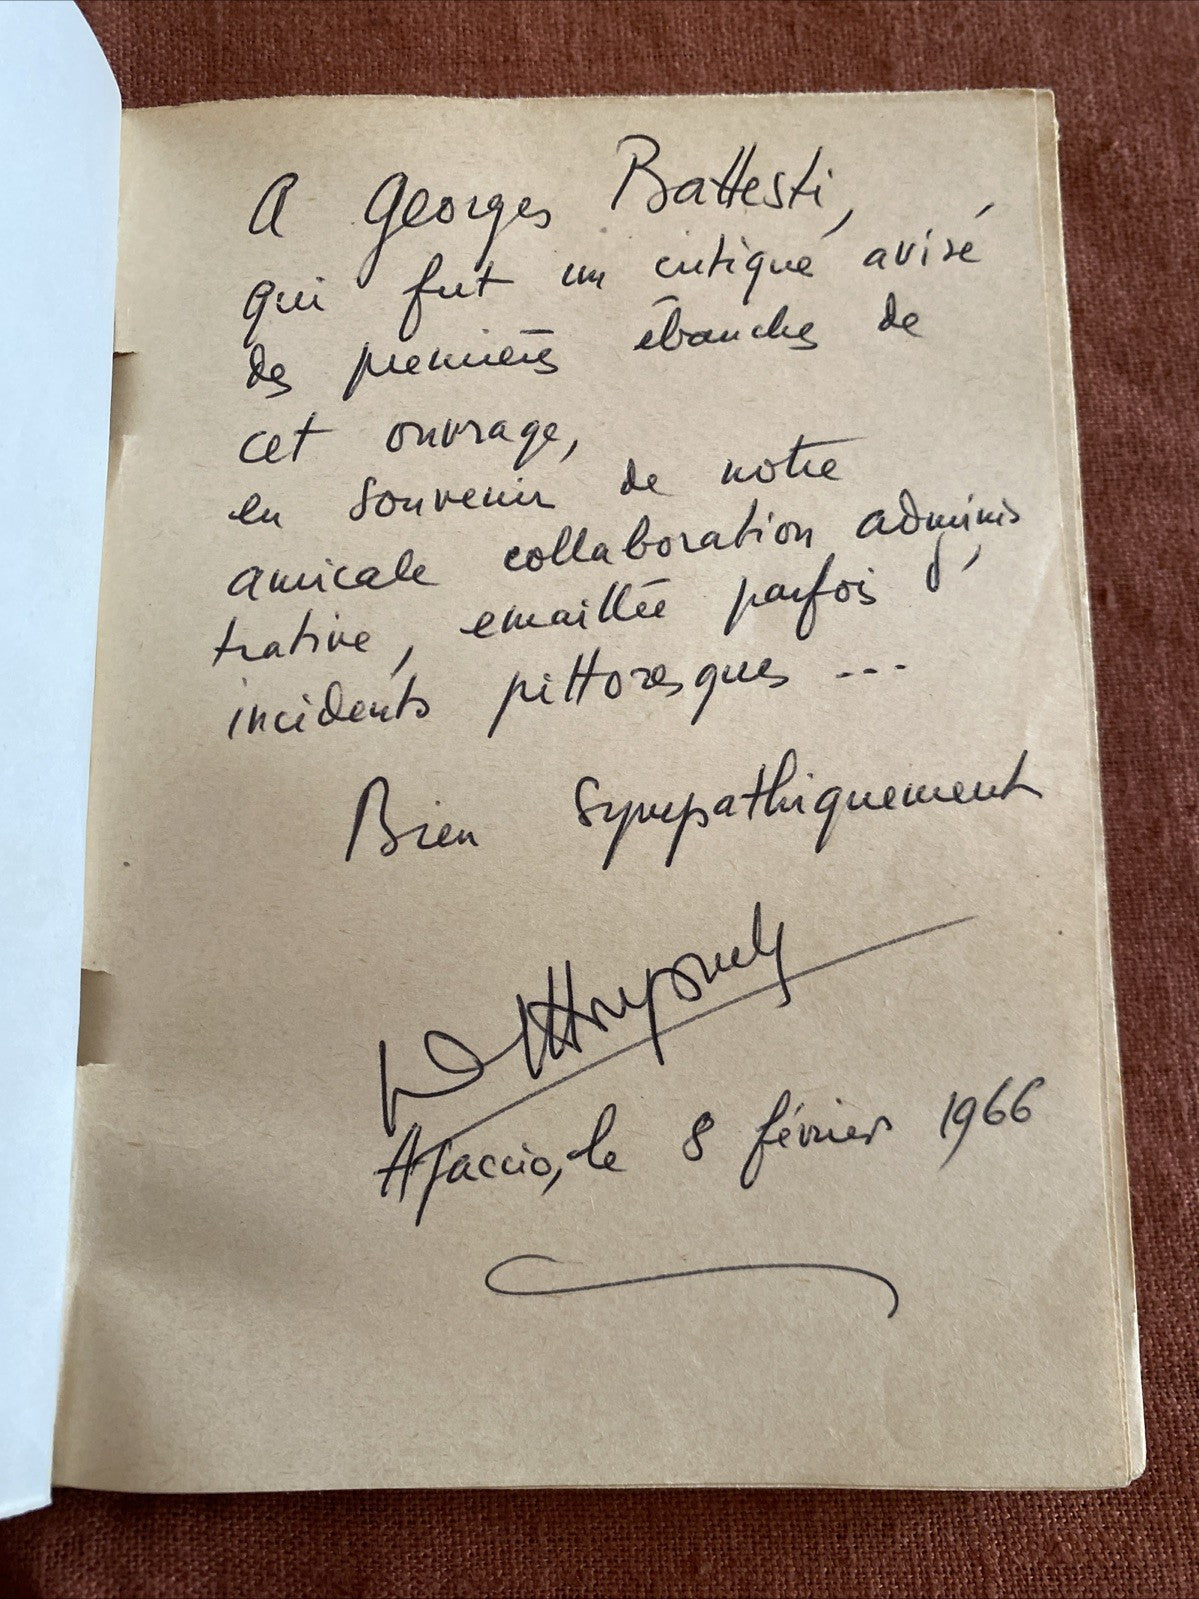 A Georges Battesti,
qui fut un critique avisé
des premières ébauches de
cet ouvrage,
en souvenir de notre
amicale collaboration adminis
trative, émaillée parfois d'
incidents pittoresques ...
Bien sympathiquement
Ajaccio, le 8 février 1966